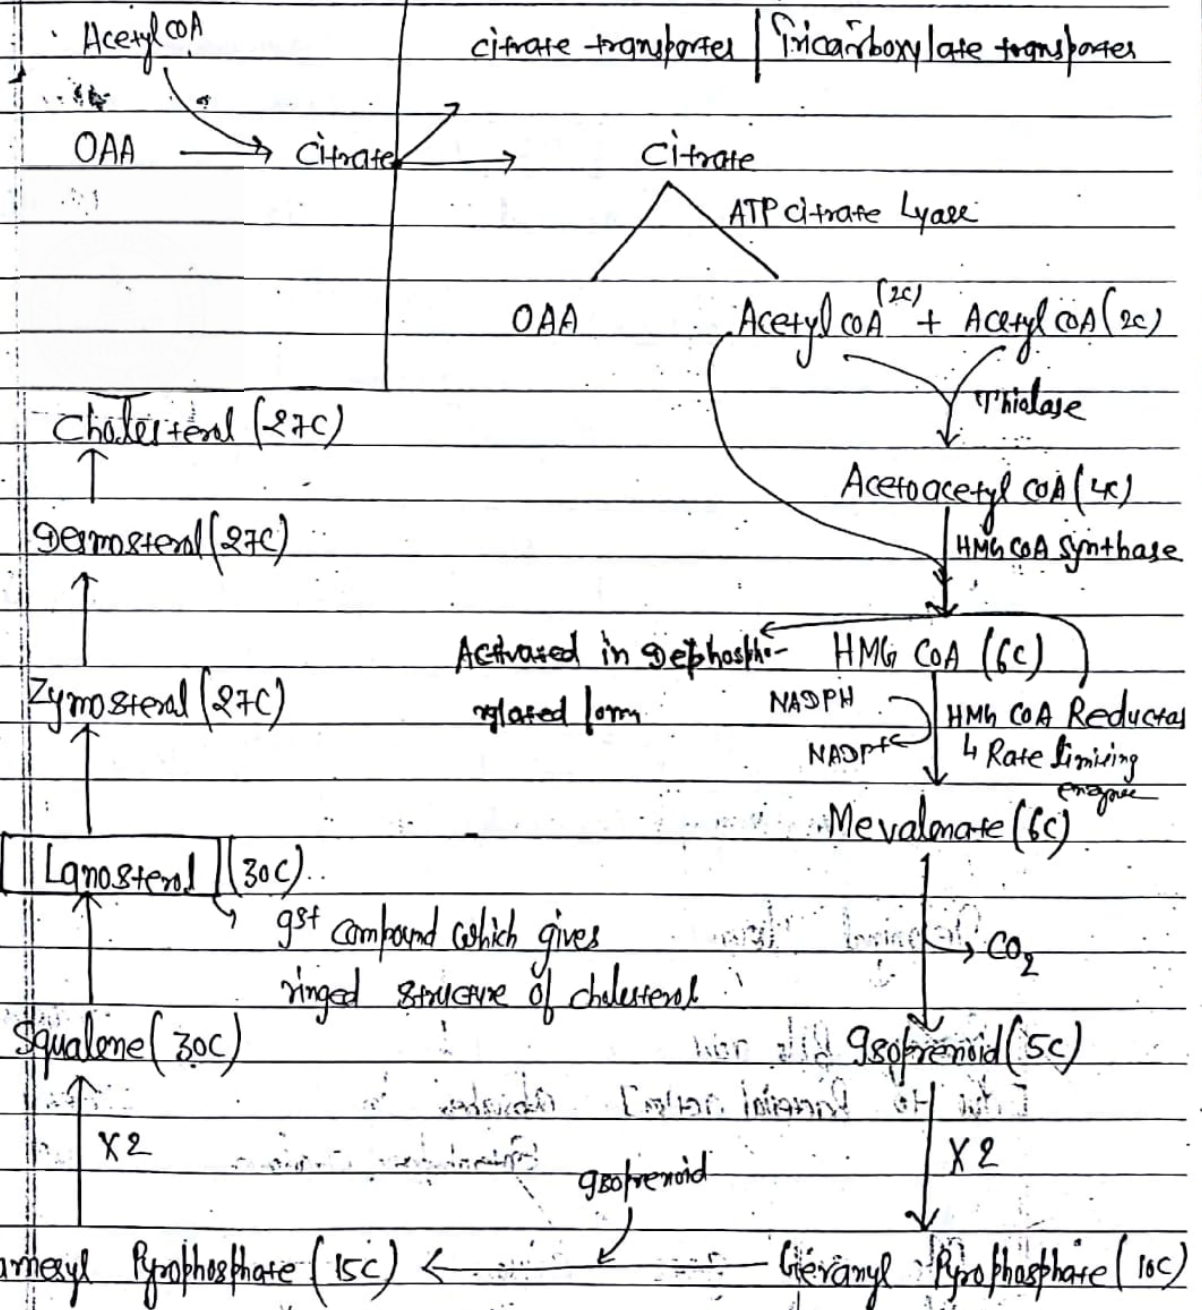 Acetyl coA
citrate transporter | Tricarboxylate transporter
OAA
Citrate
Citrate
ATP citrate Lyase
OAA
Acetyl coA (2C) + Acetyl coA (2C)
Thiolase
Acetoacetyl coA (4C)
HMG CoA Synthase
Activated in Dephospho-
rylated form
HMG CoA (6C)
NADPH
NADP+
HMG CoA Reductas
↳ Rate limiting
enzyme
Mevalonate (6C)
CO2
Isoprenoid (5C)
X2
Geranyl Pyrophosphate (10C)
Isoprenoid
arnesyl Pyrophosphate (15C)
X2
Squalene (30C)
Lanosterol (30C)
Ist compound which gives
ringed structure of cholesterol
Zymosterol (27C)
Desmosterol (27C)
Cholesterol (27C)